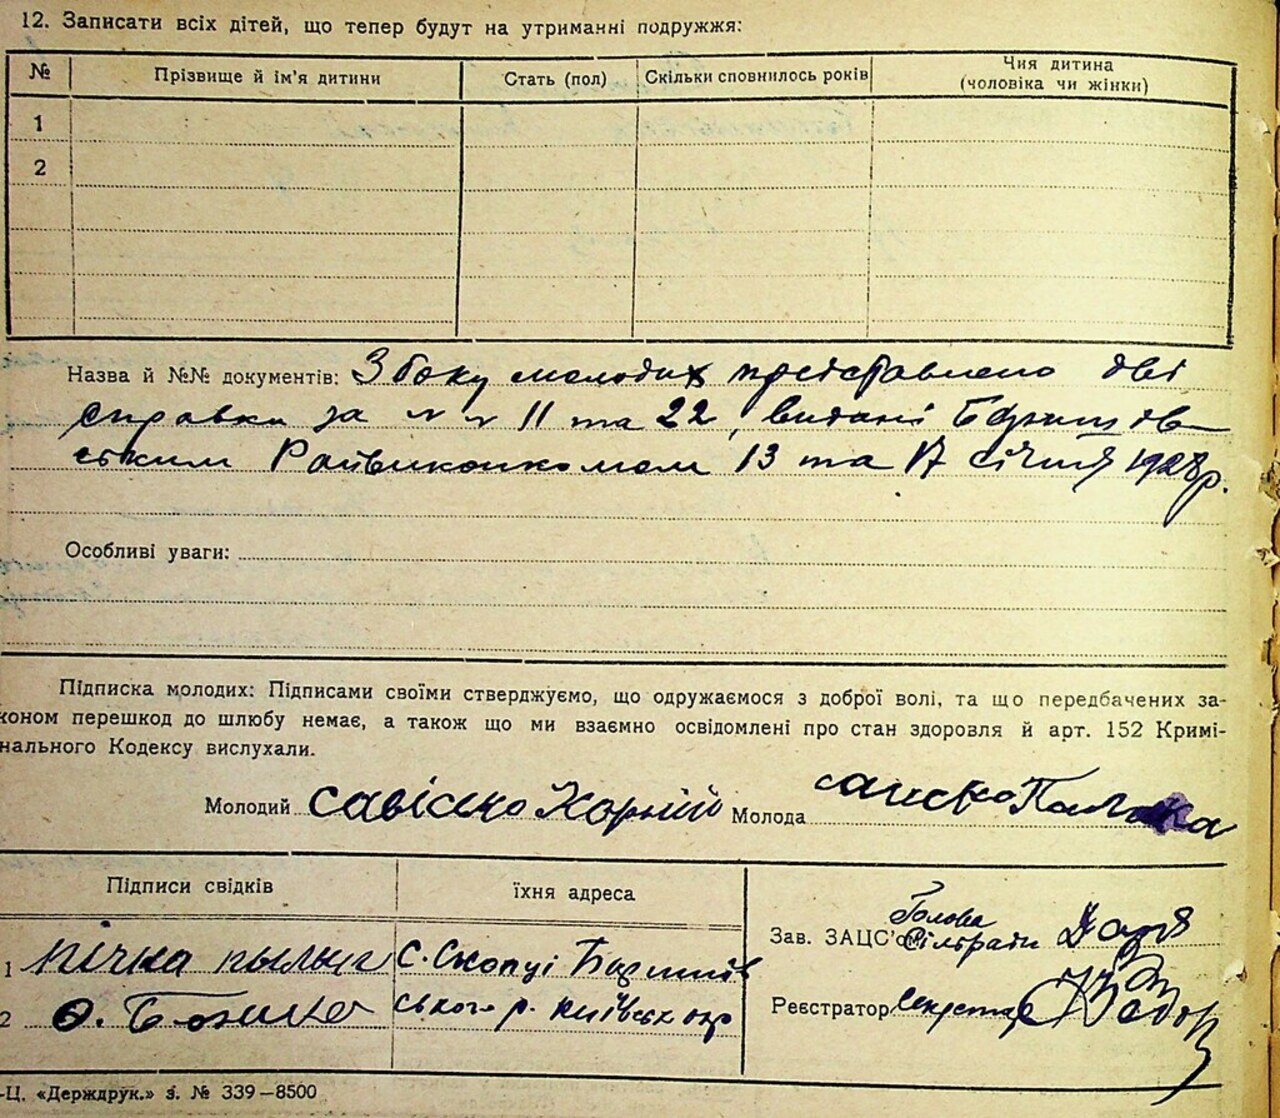 12. Записати всіх дітей, що тепер будут на утриманні подружжя:
№ Прізвище й ім'я дитини Стать (пол) Скільки сповнилось років Чия дитина
(чоловіка чи жінки)
1
2
Назва й №№ документів: З боку молодих представлено дві
справки за №№ 11 та 22, видані Баришів-
ським Райвиконкомом 13 та 17 січня 1928р.
Особливі уваги:
Підписка молодих: Підписами своїми стверджуємо, що одружаємося з доброї волі, та що передбачених за-
коном перешкод до шлюбу немає, а також що ми взаємно освідомлені про стан здоровля й арт. 152 Кримі-
нального Кодексу вислухали.
Молодий Корній Молода
Підписи свідків їхня адреса
Голова
Зав. ЗАЦС'ом Сільради
1 с. Скопці Баришів
2 ського р. Київськ окр
Реєстратор Секретар
-Ц. «Держдрук.» з. № 339—8500